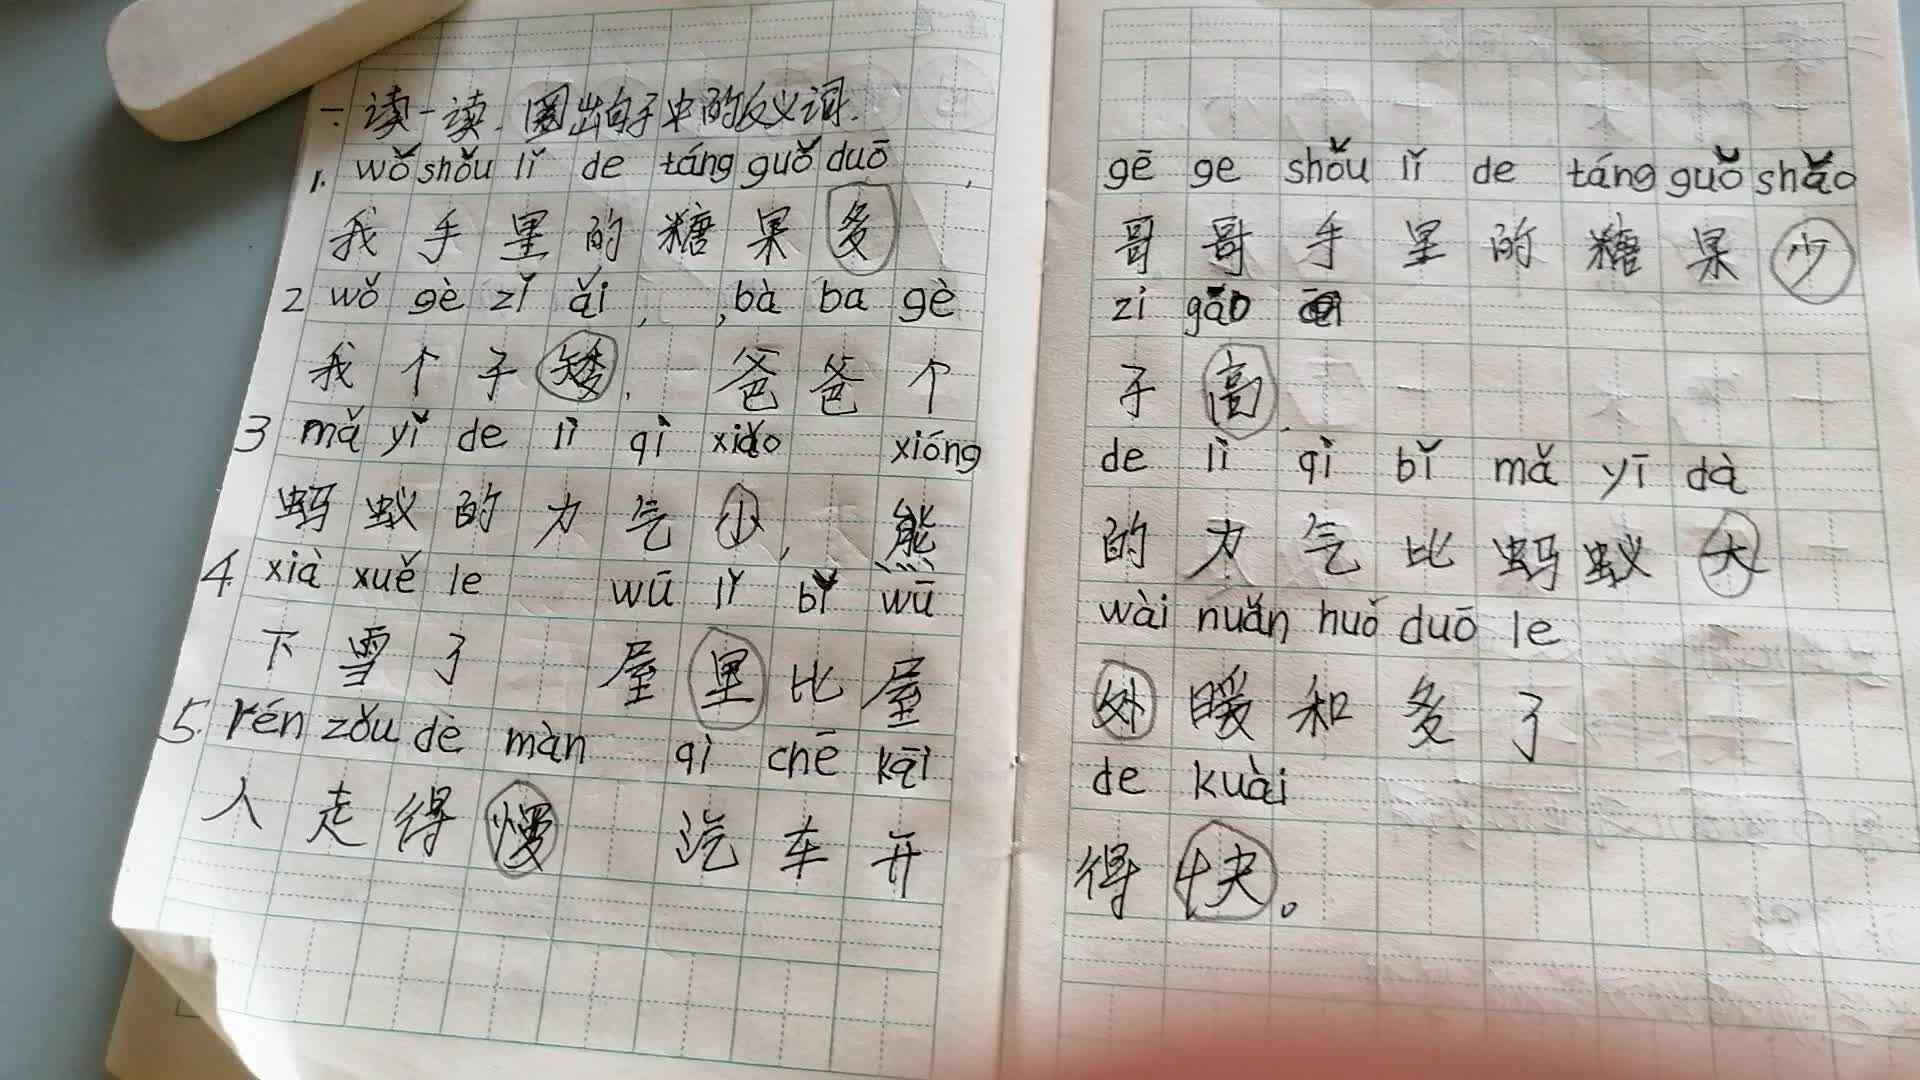 一.读一读.圈出句子中的反义词.
1. wǒ shǒu lǐ de táng guǒ duō
我手里的糖果多
2 wǒ gè zǐ ǎi, , bà ba gè
我个子矮. 爸爸个
3 mǎ yǐ de lì qì xiǎo xióng
蚂蚁的力气小, 熊
4. xià xuě le wū lǐ bǐ wū
下雪了 屋里比屋
5. rén zǒu dè màn qì chē kāi
人走得慢 汽车开
gē ge shǒu lǐ de táng guǒ shǎo
哥哥手里的糖果少
zi gāo
子高.
de lì qì bǐ mǎ yī dà
的力气比蚂蚁大
wài nuǎn huǒ duō le
外暖和多了
de kuài
得快。